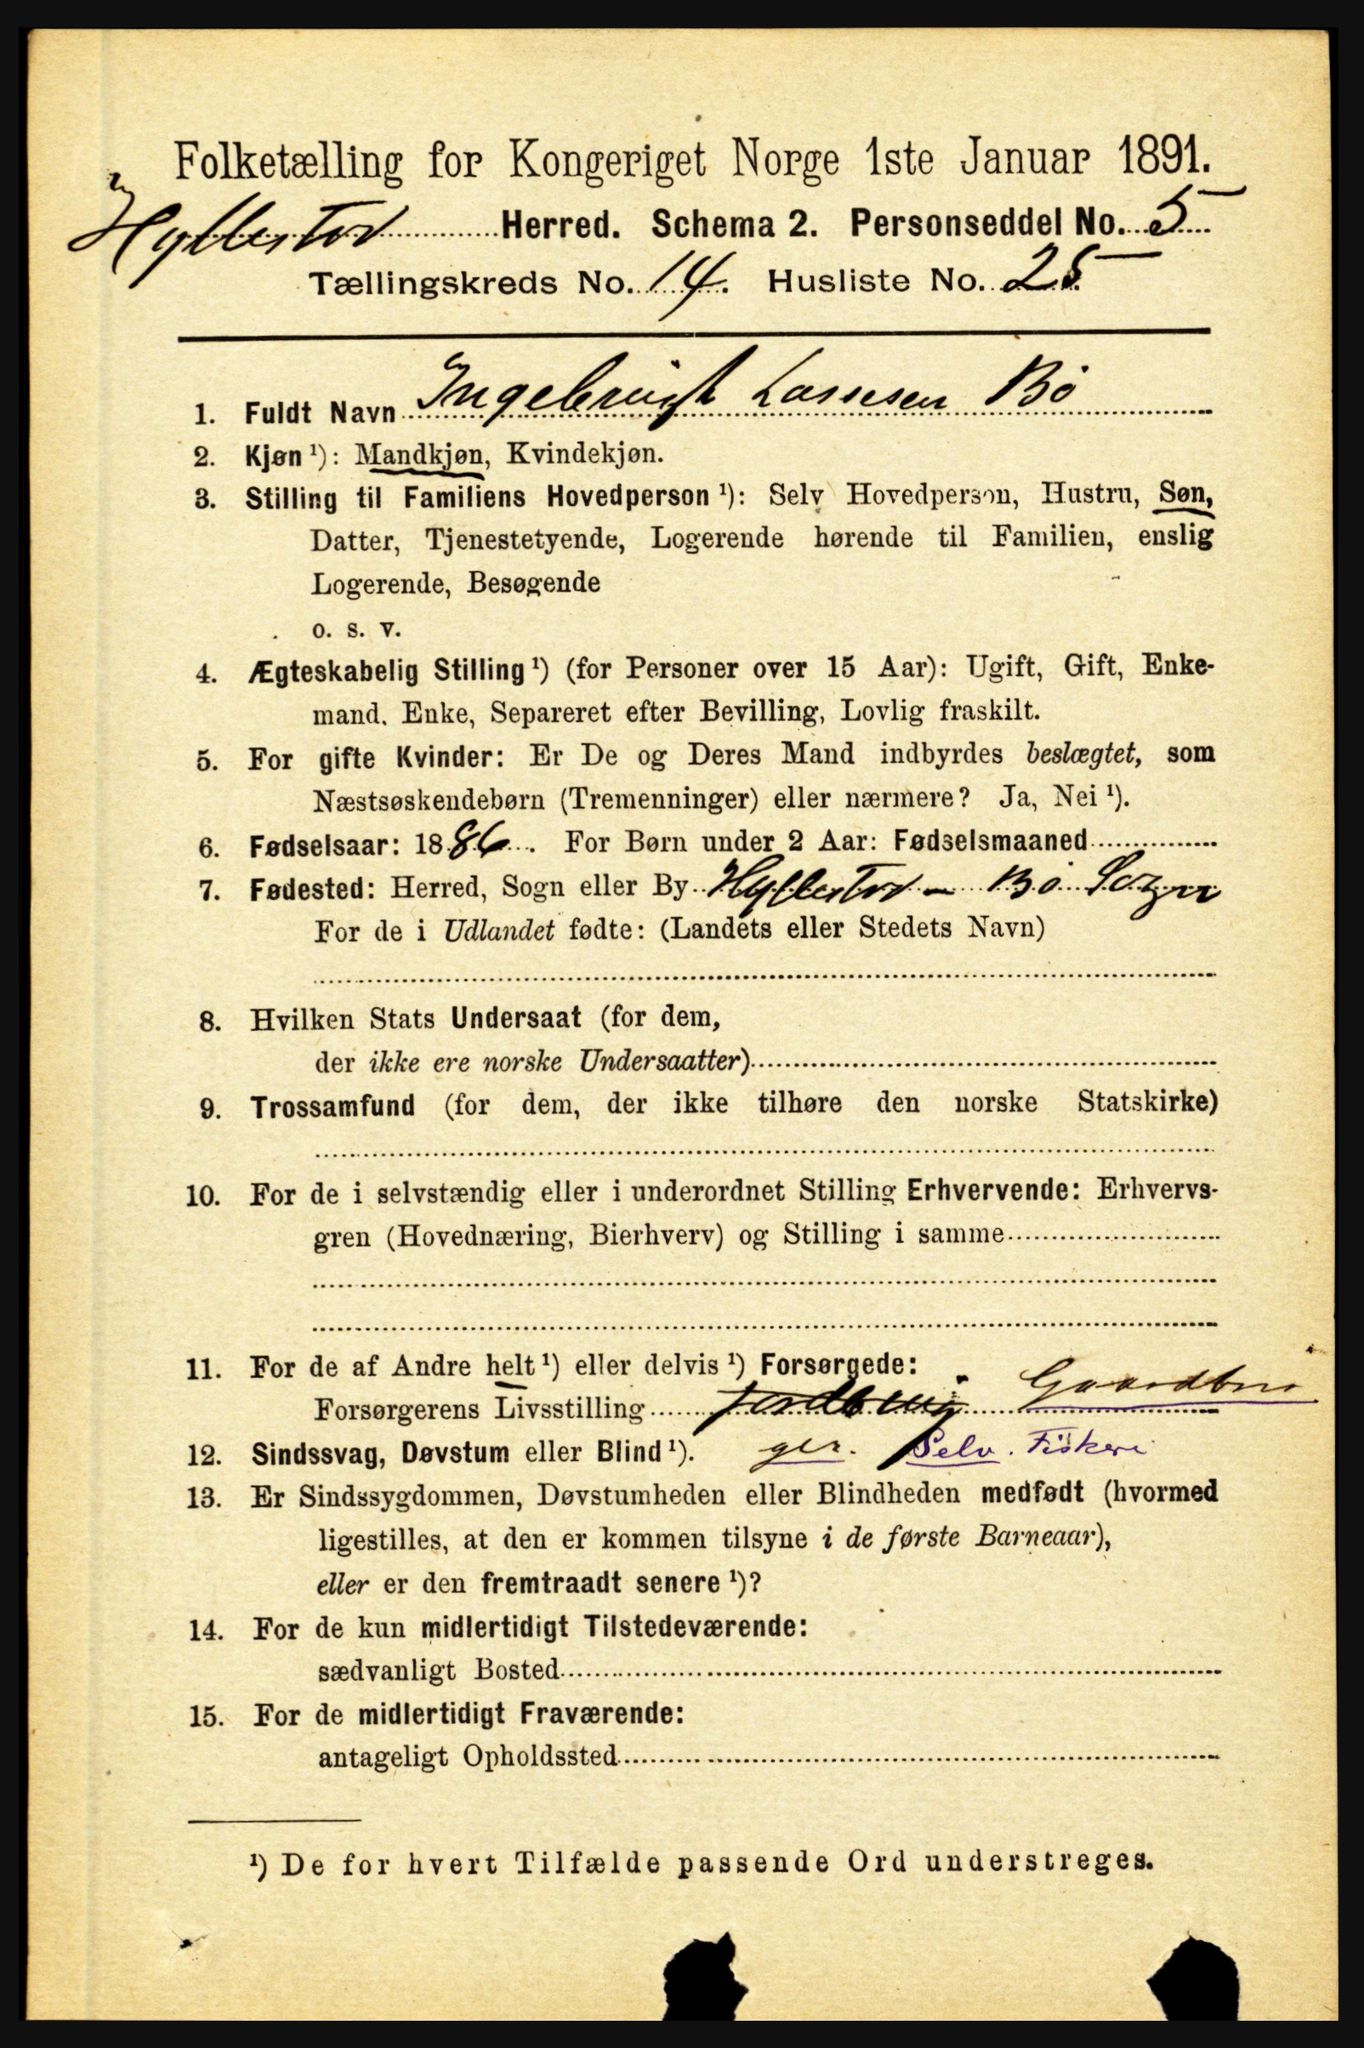 Folketælling for Kongeriget Norge 1ste Januar 1891.
Hyllestad Herred. Schema 2. Personseddel No. 5
Tællingskreds No. 14. Husliste No. 25
1. Fuldt Navn Ingebrigt Lassesen Bø
2. Kjøn ¹): Mandkjøn, Kvindekjøn.
3. Stilling til Familiens Hovedperson ¹): Selv Hovedperson, Hustru, Søn,
Datter, Tjenestetyende, Logerende hørende til Familien, enslig
Logerende, Besøgende
o. s. v.
4. Ægteskabelig Stilling ¹) (for Personer over 15 Aar): Ugift, Gift, Enke-
mand, Enke, Separeret efter Bevilling, Lovlig fraskilt.
5. For gifte Kvinder: Er De og Deres Mand indbyrdes beslægtet, som
Næstsøskendebørn (Tremenninger) eller nærmere? Ja, Nei ¹).
6. Fødselsaar: 1886. For Børn under 2 Aar: Fødselsmaaned
7. Fødested: Herred, Sogn eller By Hyllestad - Bø Sogn
For de i Udlandet fødte: (Landets eller Stedets Navn)
8. Hvilken Stats Undersaat (for dem,
der ikke ere norske Undersaatter)
9. Trossamfund (for dem, der ikke tilhøre den norske Statskirke)
10. For de i selvstændig eller i underordnet Stilling Erhvervende: Erhvervs-
gren (Hovednæring, Bierhverv) og Stilling i samme
11. For de af Andre helt ¹) eller delvis ¹) Forsørgede:
Forsørgerens Livsstilling Gaardbru
12. Sindssvag, Døvstum eller Blind ¹). ger. Selv. Fisker
13. Er Sindssygdommen, Døvstumheden eller Blindheden medfødt (hvormed
ligestilles, at den er kommen tilsyne i de første Barneaar),
eller er den fremtraadt senere ¹)?
14. For de kun midlertidigt Tilstedeværende:
sædvanligt Bosted
15. For de midlertidigt Fraværende:
antageligt Opholdssted
¹) De for hvert Tilfælde passende Ord understreges.